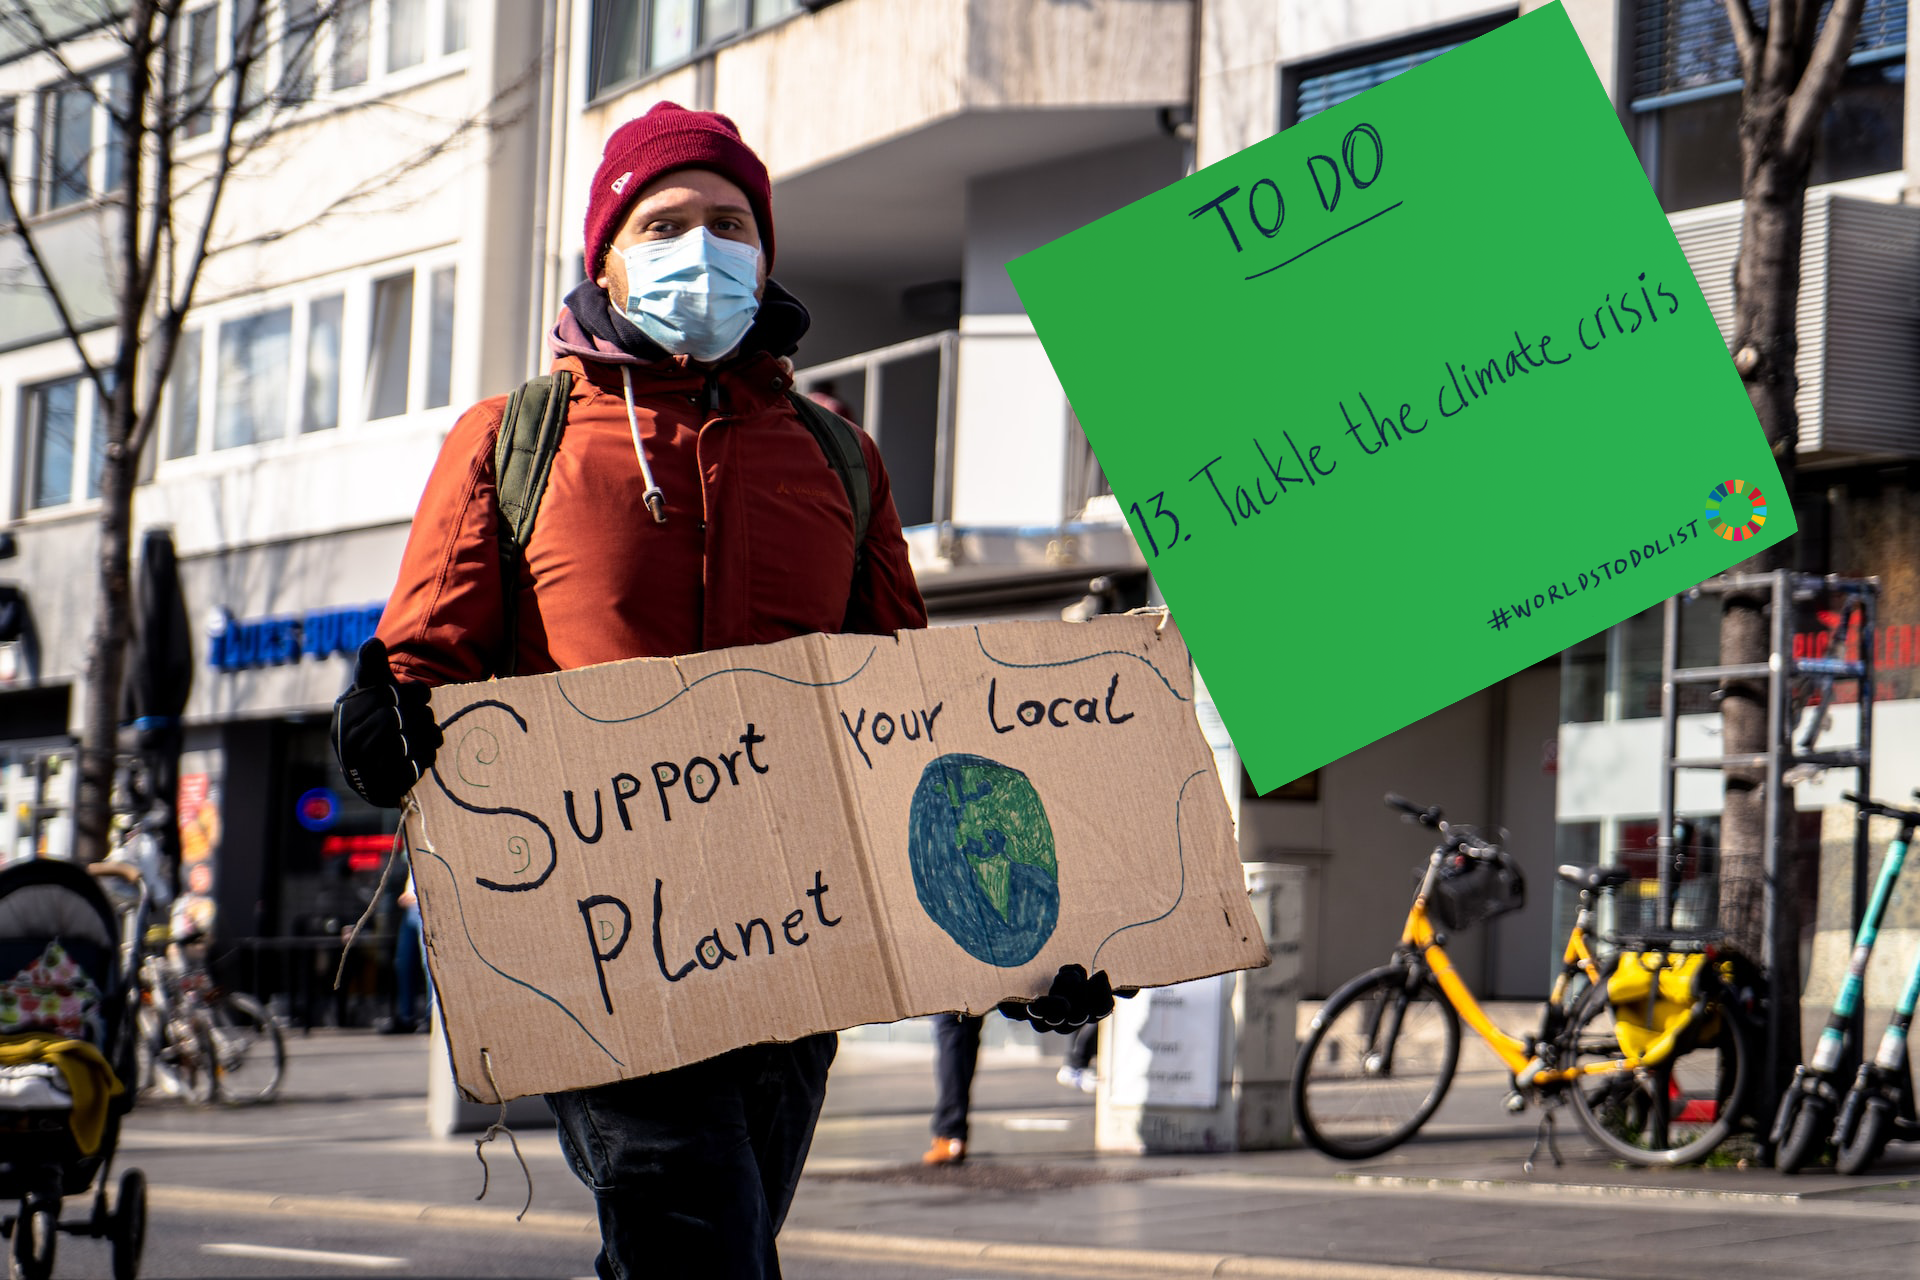 TO DO
13. Tackle the climate crisis
#WORLDSTODOLIST
Support your Local
Planet